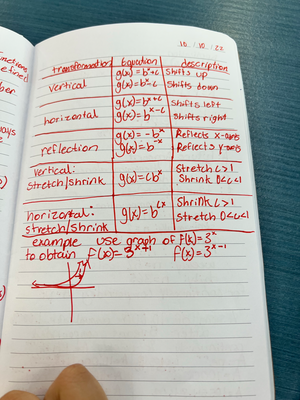 10/10/22
transformation Equation description
vertical
g(x)=bˣ+c Shifts up
g(x)=bˣ-c Shifts down
horizontal
g(x)=bˣ⁺ᶜ Shifts left
g(x)=bˣ⁻ᶜ Shifts right
reflection
g(x)=-bˣ Reflects x-axes
g(x)=b⁻ˣ Reflects y-axes
vertical:
stretch/shrink
g(x)=cbˣ
Stretch c>1
Shrink 0<c<1
horizontal:
stretch/shrink
g(x)=bᶜˣ
Shrink c>1
Stretch 0<c<1
example use graph of f(x)=3ˣ
to obtain f(x)=3ˣ⁺¹ f(x)=3ˣ⁻¹